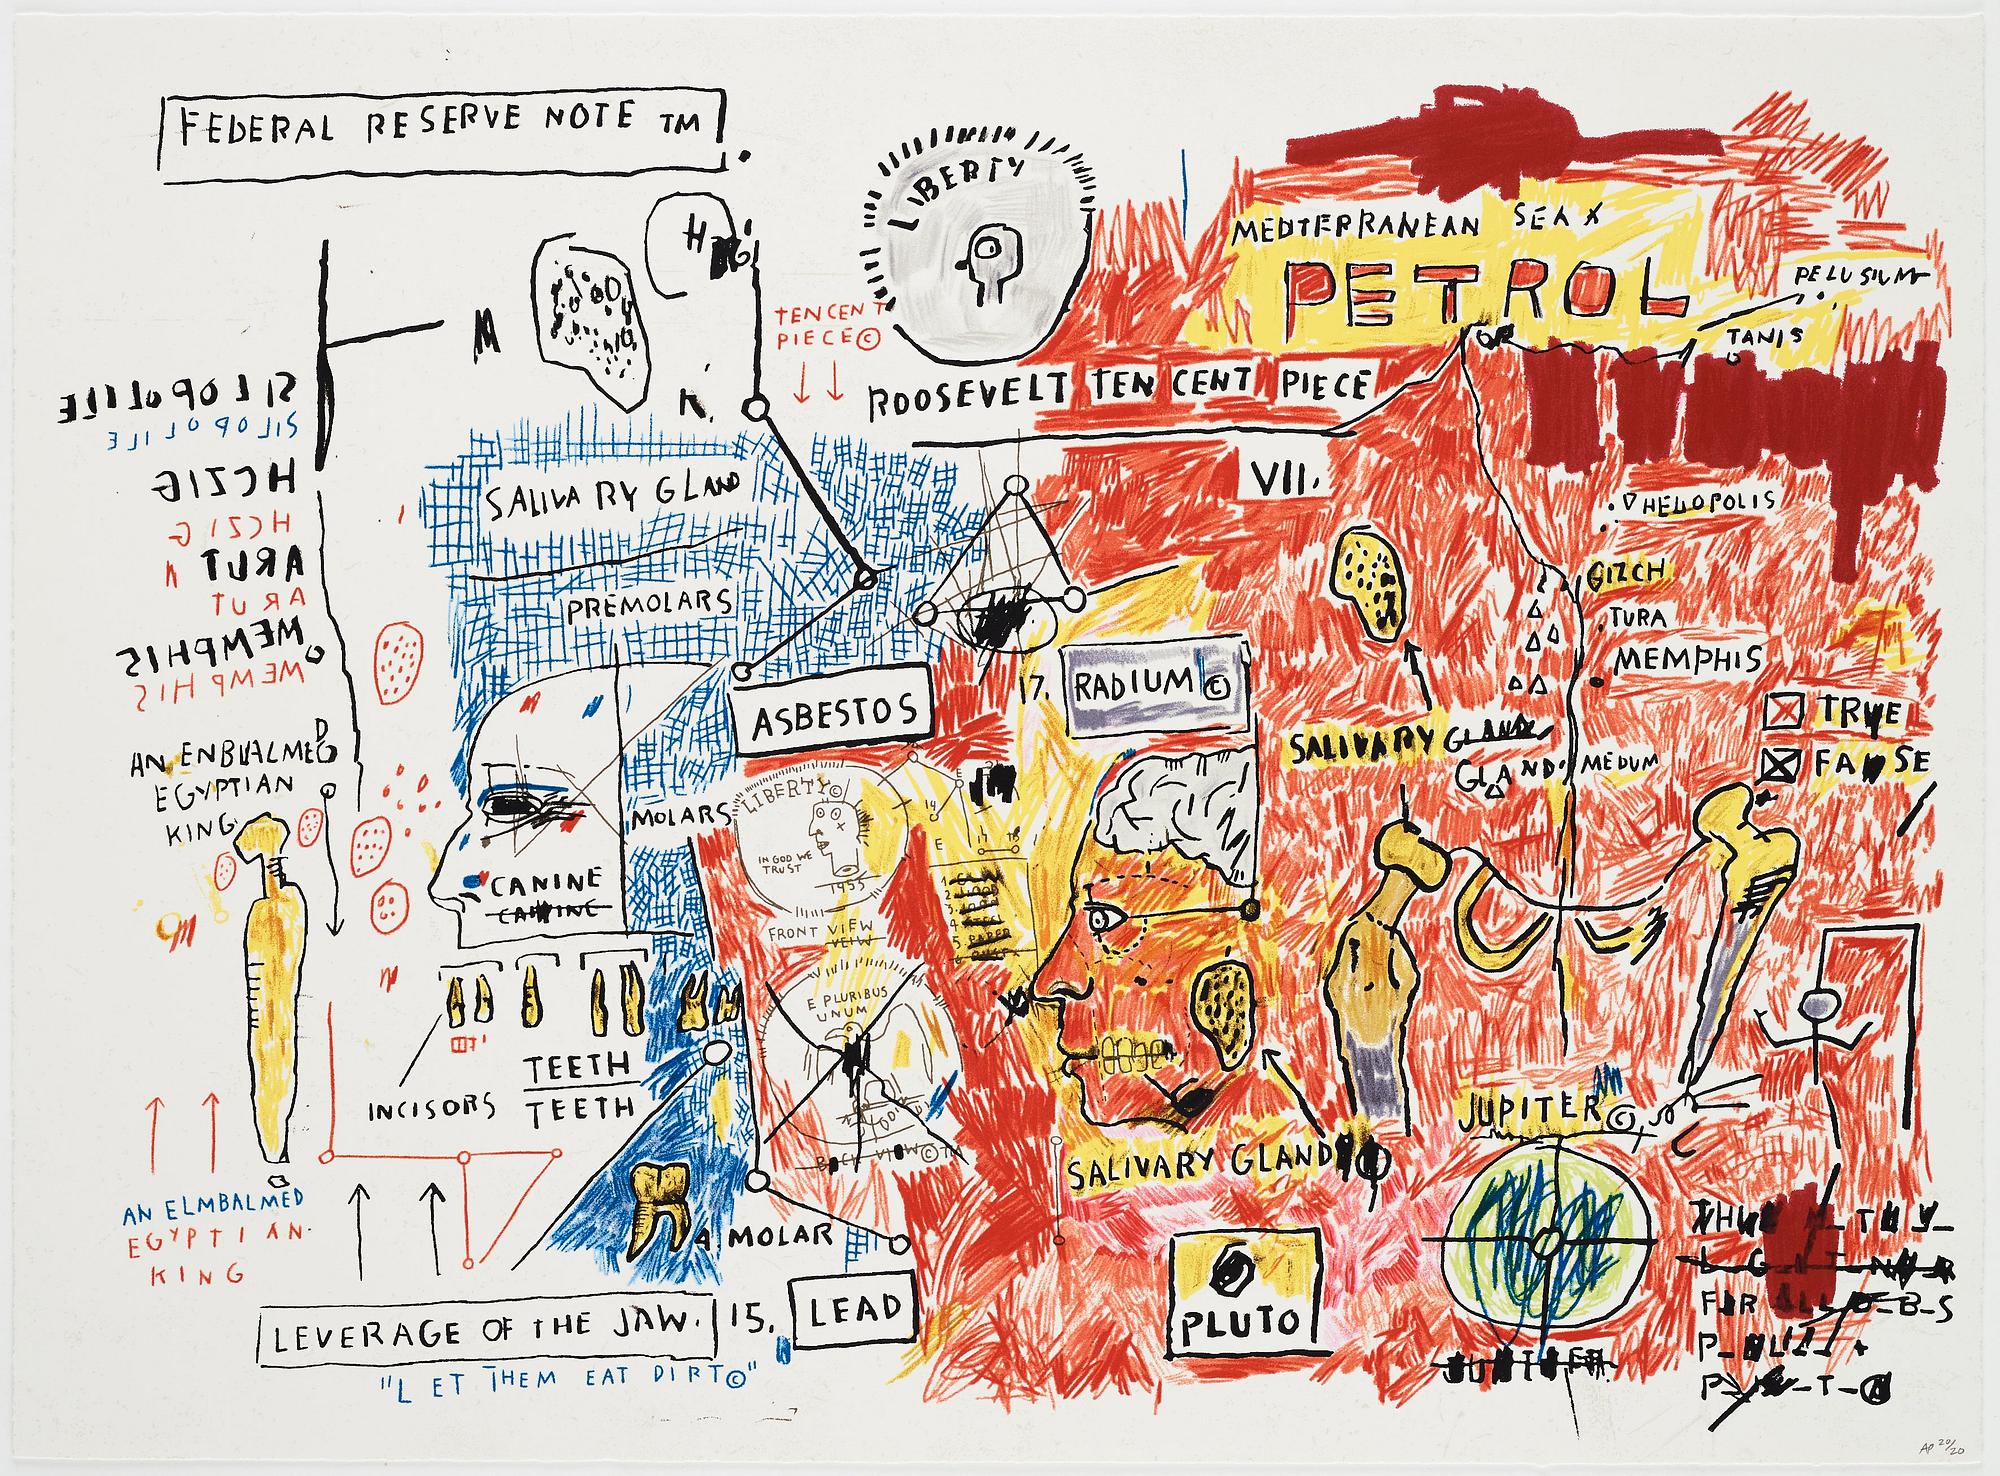 FEDERAL RESERVE NOTE TM
LIBERTY
TEN CENT
PIECE©
ROOSEVELT TEN CENT PIECE
MEDTERRANEAN SEA X
PETROL
PELUSIUM
TANIS
VII.
HELIOPOLIS
GIZCH
TURA
MEMPHIS
MEDUM
SILOPOLILE
SILOPOLILE
HCZIG
HCZIG
ARUT
ARUT
MEMPHIS
MEMPHIS
AN ENBUALMED
EGYPTIAN
KING
SALIVARY GLAND
PREMOLARS
ASBESTOS
17. RADIUM©
SALIVARY GLAND
GLAND
TRUE
FALSE
MOLARS
CANINE
CANINE
LIBERTY©
IN GOD WE
TRUST
1955
FRONT VIEW
VEIW
5. PAPER
E PLURIBUS
UNUM
BACK VIEW©TM
TEETH
TEETH
INCISORS
AN ELMBALMED
EGYPTIAN
KING
4 MOLAR
SALIVARY GLAND
JUPITER©
PLUTO
JUPITER
LEVERAGE OF THE JAW. 15. LEAD
"LET THEM EAT DIRT©"
AP 20/20